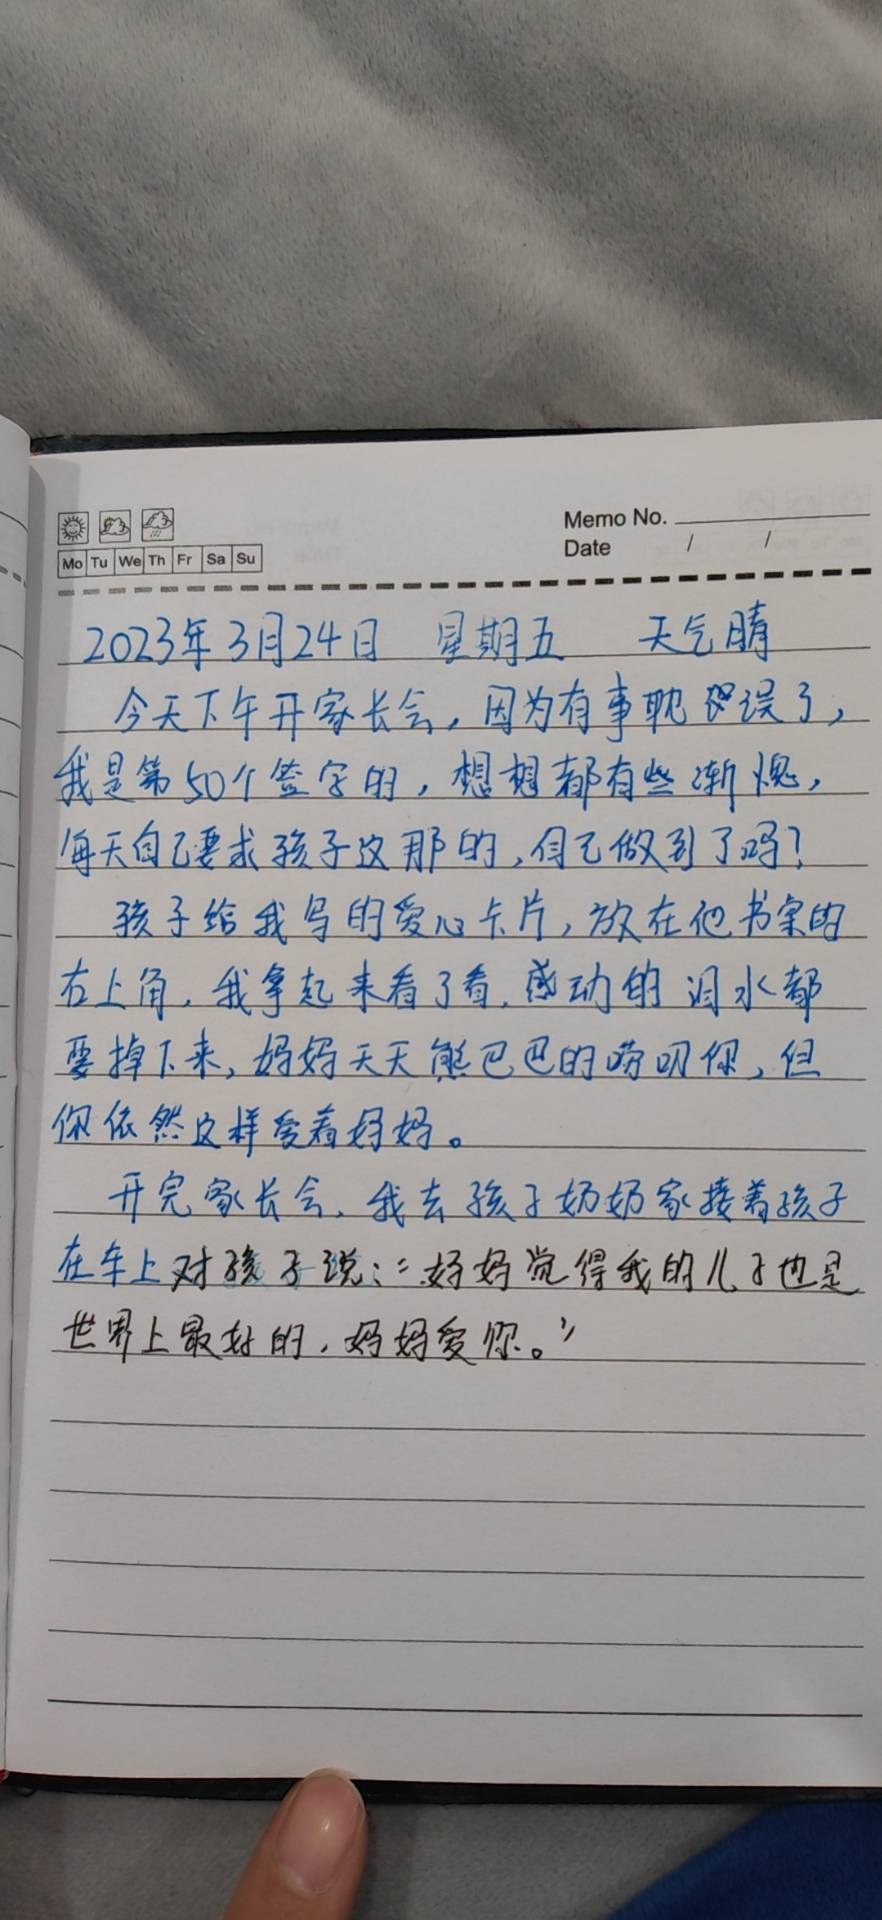 Memo No.
Date / /
Mo Tu We Th Fr Sa Su
2023年3月24日 星期五 天气晴
今天下午开家长会，因为有事耽误了，
我是第50个签字的，想想都有些渐愧，
每天自己要求孩子这那的，自己做到了吗？
孩子给我写的爱心卡片，放在他书案的
右上角，我拿起来看了看，感动的泪水都
要掉下来，妈妈天天熊巴巴的唠叨你，但
你依然这样爱着妈妈。
开完家长会，我去孩子奶奶家接着孩子
在车上对孩子说：“妈妈觉得我的儿子也是
世界上最好的，妈妈爱你。”